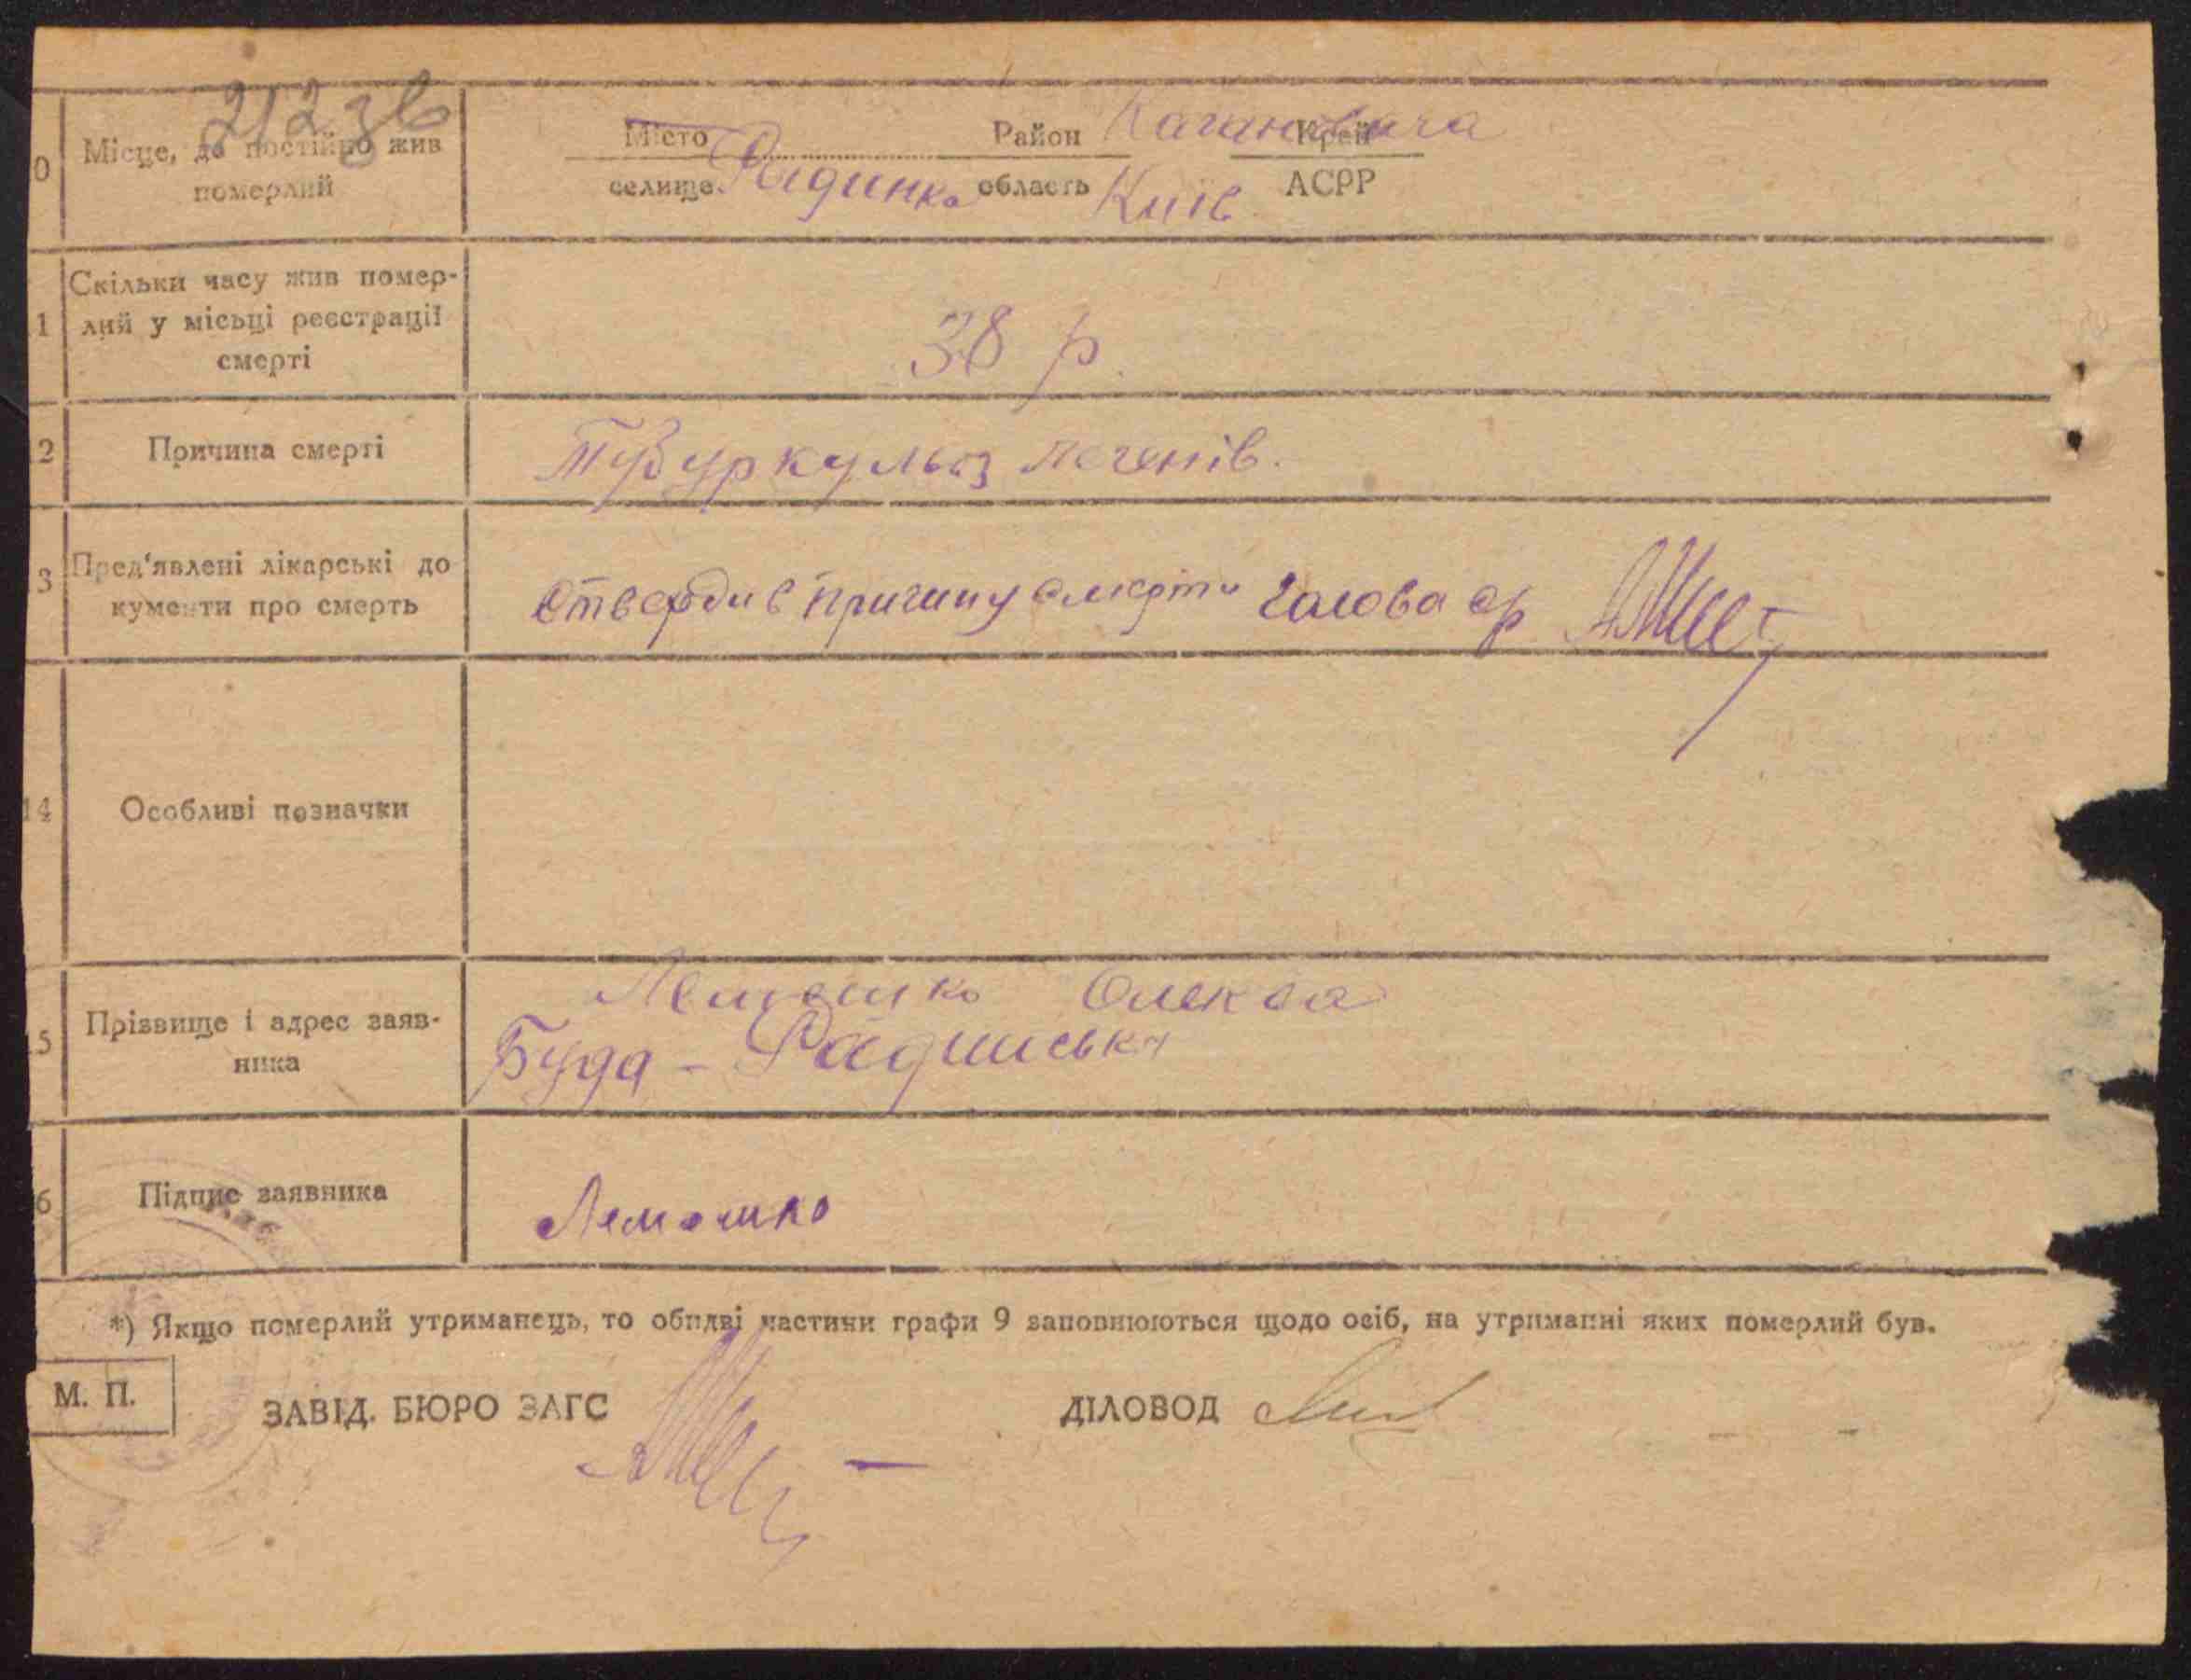 212 зв
0 Місце, де постійно жив померлий
Місто Радинка Район Кагановича Край
селище область Київ АСРР
1 Скільки часу жив помер-
лий у місьці реєстрації
смерті
38 р.
2 Причина смерті
Тубуркульоз легенів.
3 Пред'явлені лікарські до
кументи про смерть
Ствердив причину смерти Голова ср
14 Особливі позначки
15 Прізвище і адрес заяв-
ника
Лемешко Олекса
Буда - Радинська
6 Підпис заявника
Лемешко
*) Якщо померлий утриманець, то обидві частини графи 9 заповнюються щодо осіб, на утриманні яких померлий був.
М. П.
ЗАВІД. БЮРО ЗАГС ДІЛОВОД